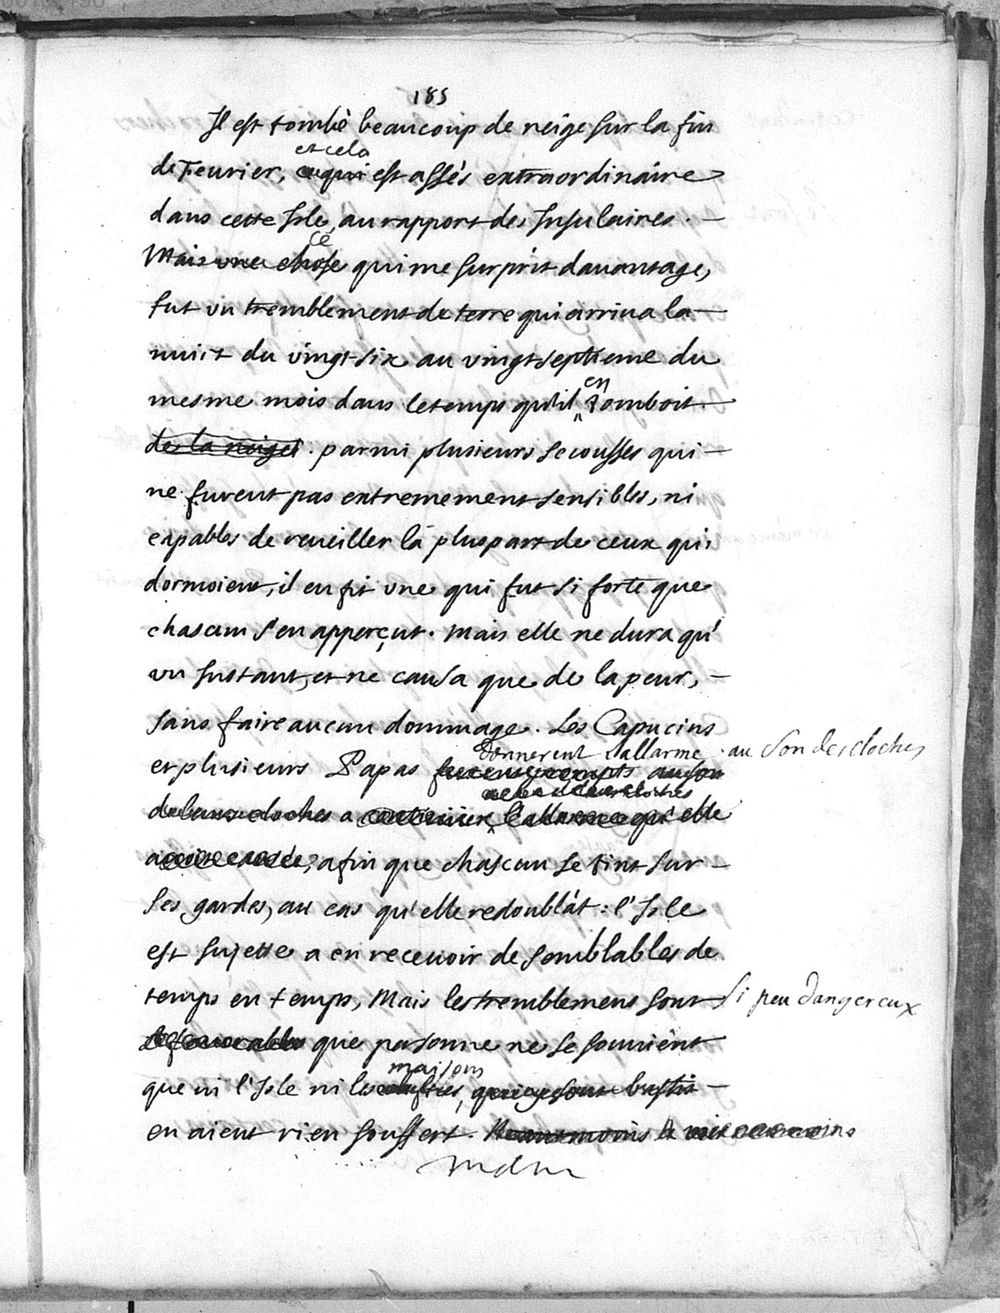 185
Il est tombé beaucoup de neige sur la fin
de Feurier, et cela ce qui est assès extraordinaire
dans cette Isle, au rapport des Insulaires.
Mais une chose ce qui me surprit dauantage,
fut vn tremblement de terre qui arriua la
nuict du vingt-six au vingt-septieme du
mesme mois dans le temps qu'il en tomboit
de la neige. parmi plusieurs secousses qui
ne furent pas extremement sensibles, ni
capables de reueiller la pluspart de ceux qui
dormoient, il en fit vne qui fut si forte que
chascun s'en apperçut. Mais elle ne dura qu'
vn Instant, et ne causa que de la peur,
sans faire aucun dommage. Les Capucins
et plusieurs Papas donnerent l'allarme au son des cloches
de leurs cloches a l'allarme qu'elle
afin que chascun se tint sur
ses gardes, au cas qu'elle redoublât: l'Isle
est sujette a en receuoir de semblables de
temps en temps, Mais les tremblemens sont si peu dangereux
que personne ne se souuient
que ni l'Isle ni les maisons, qui y sont basties
en aient rien souffert.